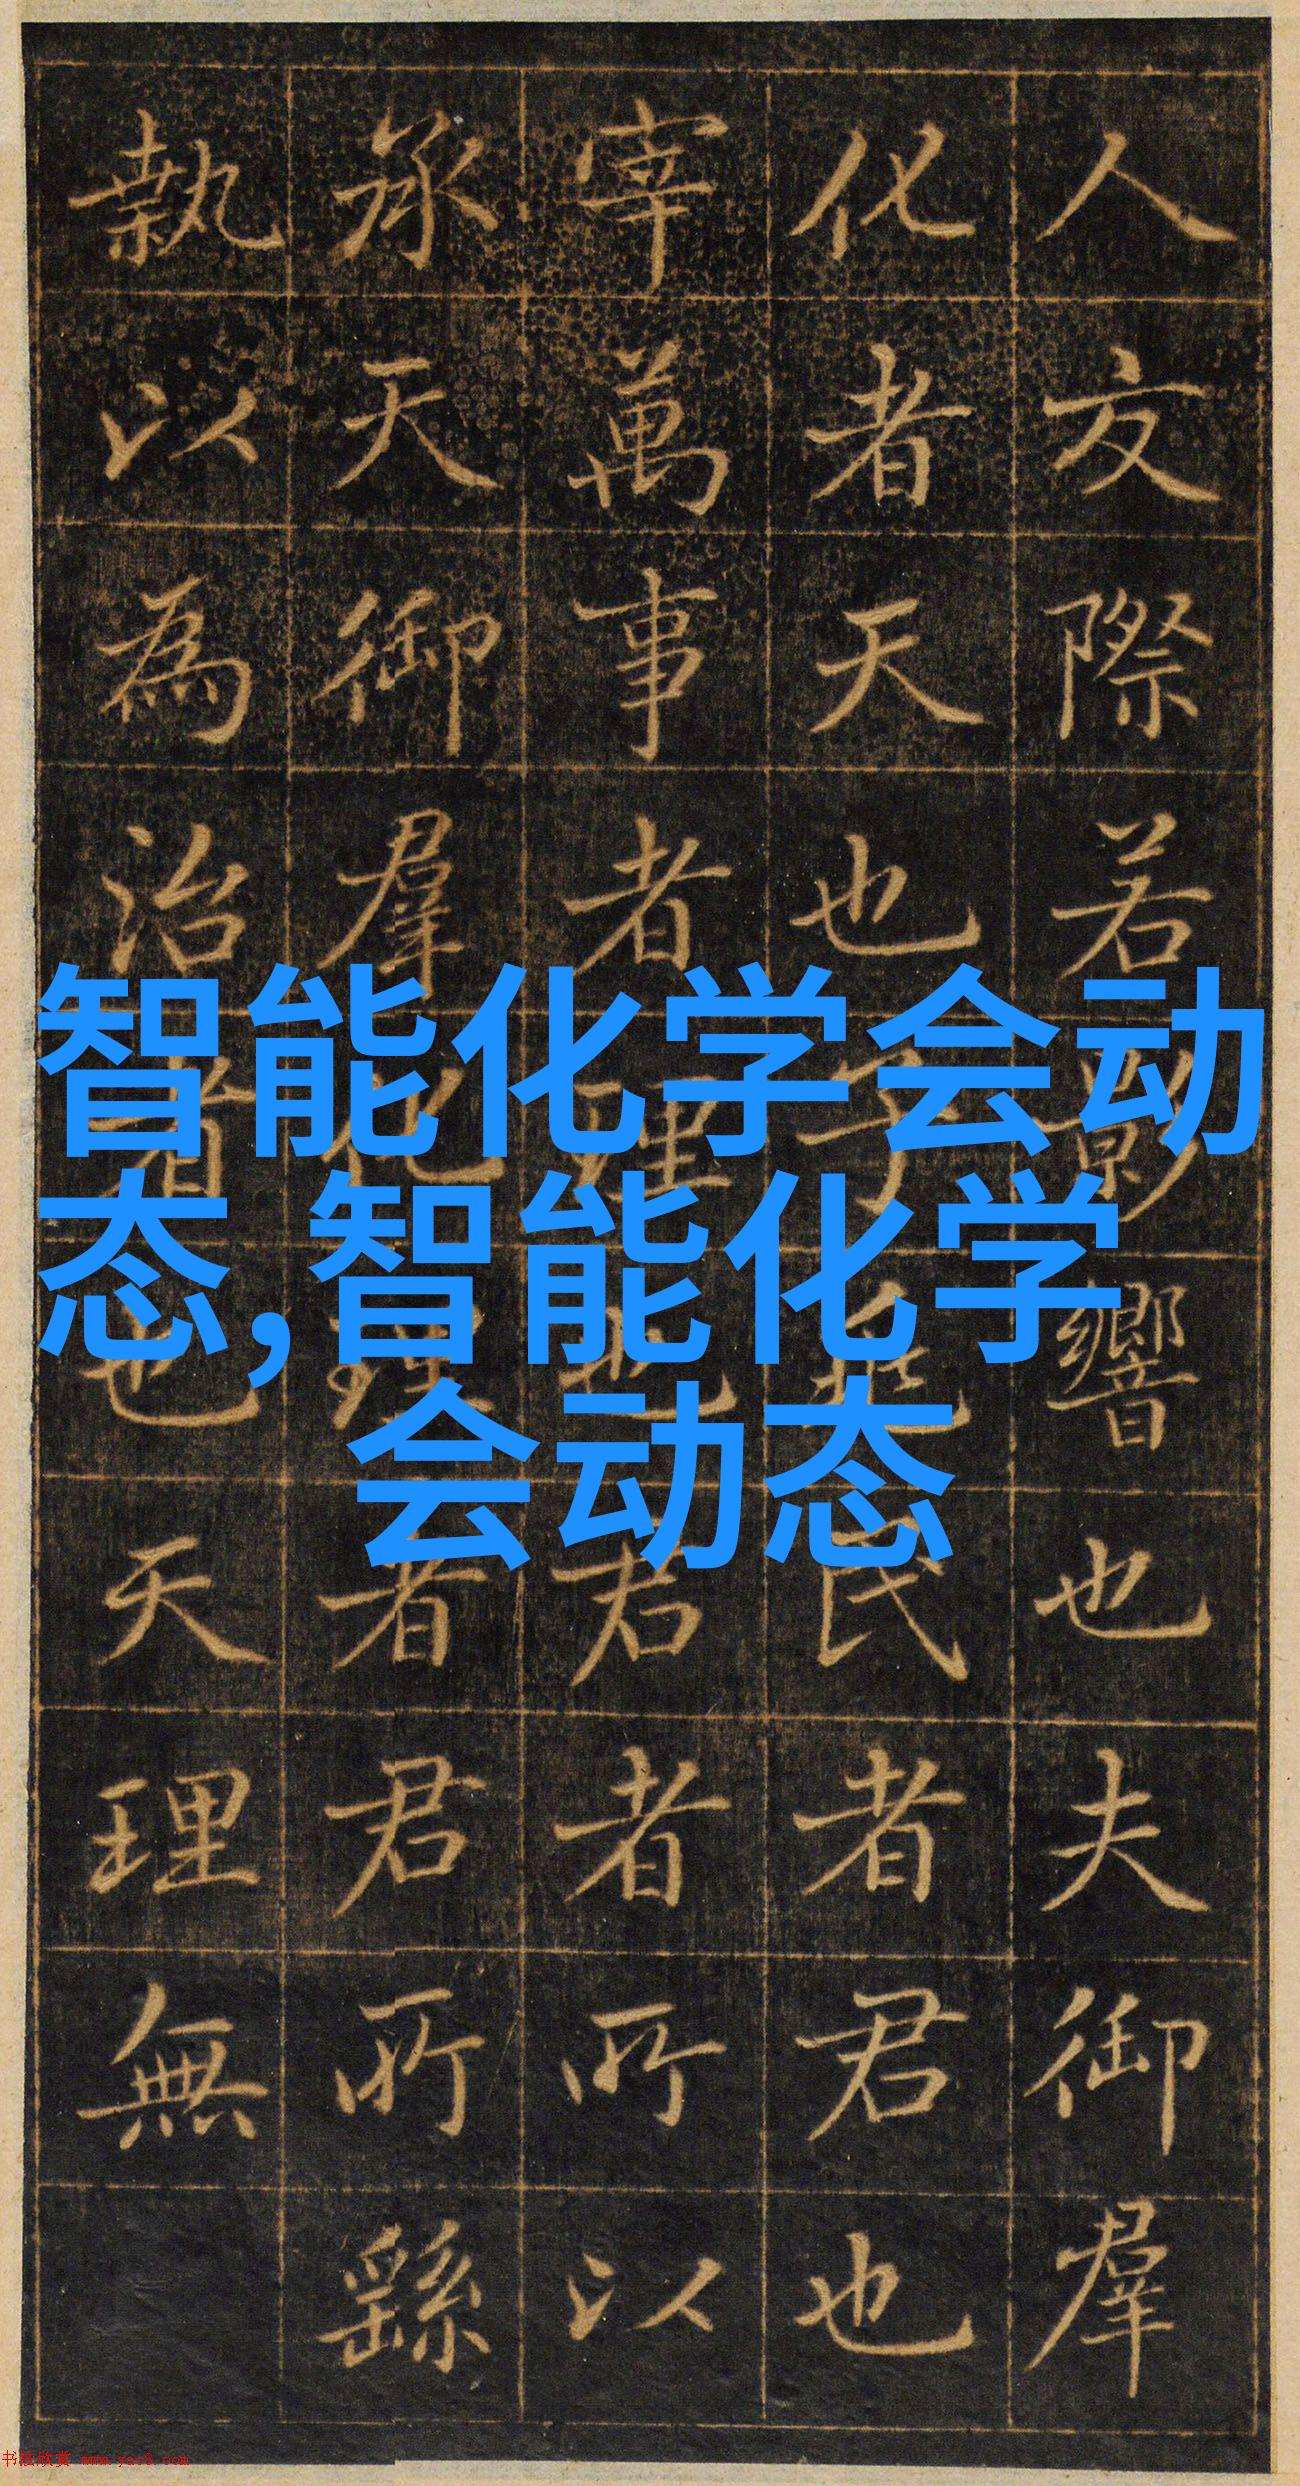 人交際若影響也夫御羣
化者天也子兆民者君也
宰萬事者理也君者所以
承天御羣化理者君所繇
執以為治者也天理無
智能化学会动
态,智能化学
会动态
书法欣赏 www.yac8.com